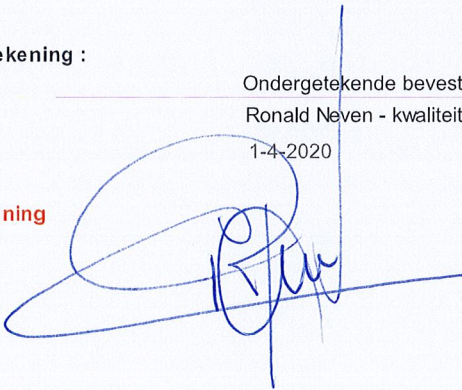 ekening :
Ondergetekende bevest
Ronald Neven - kwaliteit
1-4-2020
ning